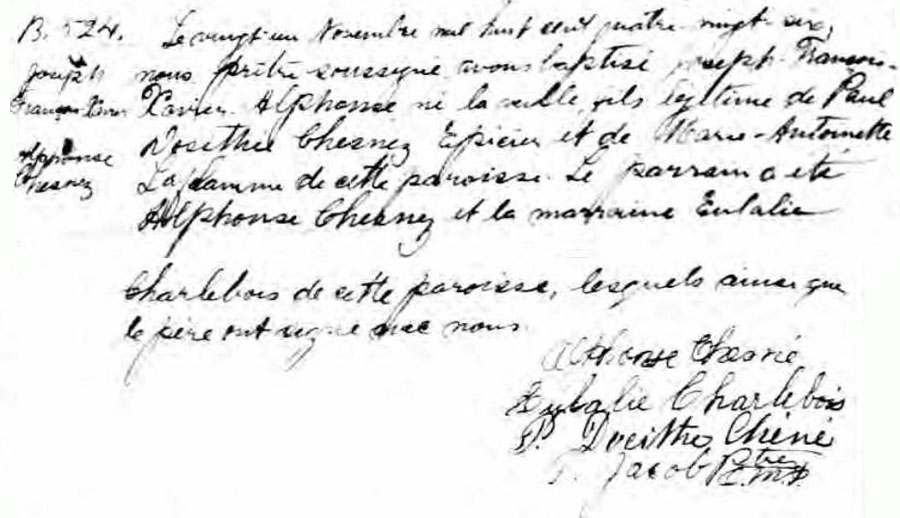 B. 524.
Joseph
François Xavier
Alphonse
Chesnez
Le vingt-un Novembre mil huit cent quatre-vingt-six,
nous prêtre soussigné avons baptisé Joseph-François-
Xavier-Alphonse né la veille, fils légitime de Paul
Dosithée Chesnez Epicier et de Marie-Antoinette
de cette paroisse. Le parrain a été
Alphonse Chesnez et la marraine Eulalie
Charlebois de cette paroisse, lesquels ainsi que
le père ont signé avec nous.
Alphonse Chesné
Eulalie Charlebois
P. Chéné
Jacob Ptre